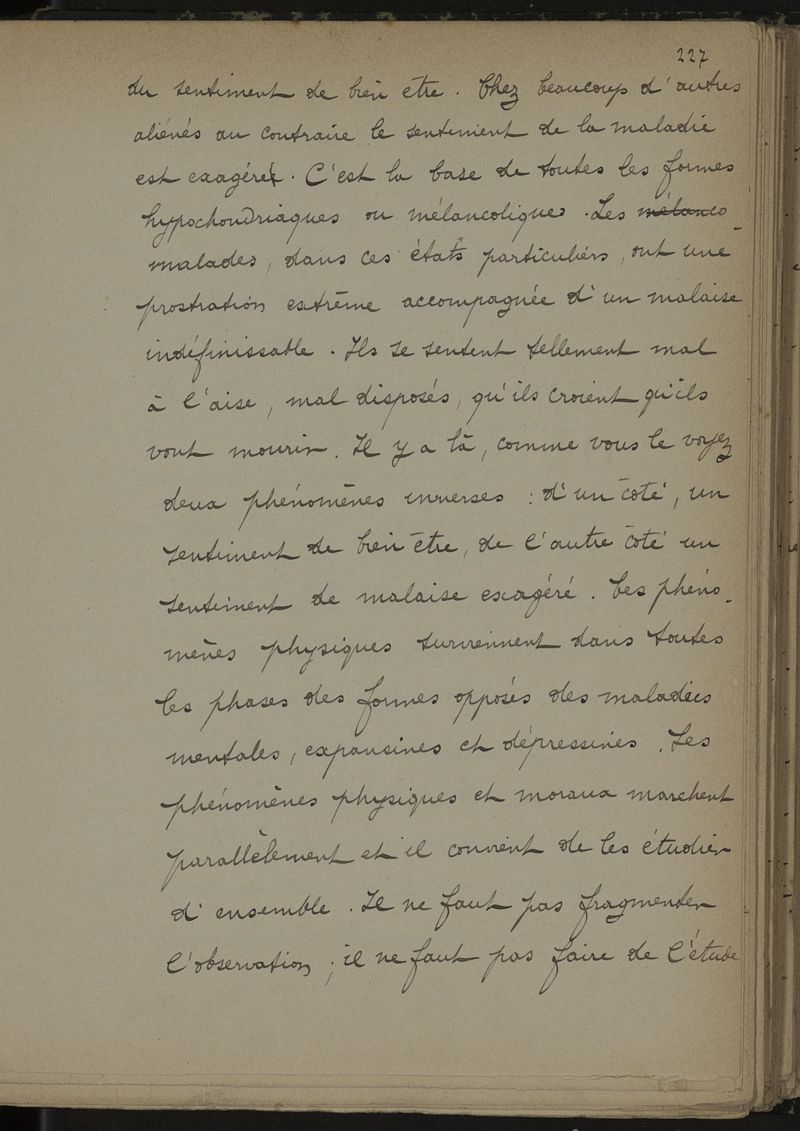 227
du sentiment de bien être. Chez beaucoup d'autres
aliénés au contraire le sentiment de la maladie
est exagéré. C'est la base de toutes les formes
hypochondriaques ou mélancoliques. Les mélanco-
malades, dans ces états particuliers, ont une
prostration extrême accompagnée d'un malaise
indéfinissable. Ils se sentent tellement mal
à l'aise, mal disposés, qu'ils croient qu'ils
vont mourir. Il y a là, comme vous le voyez
deux phénomènes inverses : d'un côté, un
sentiment de bien être, de l'autre côté un
sentiment de malaise exagéré. Ces phéno-
mènes physiques surviennent dans toutes
les phases des formes opposés des maladies
mentales, expansives et dépressives. Les
phénomènes physiques et moraux marchent
parallèlement et il convient de les étudier
d'ensemble. Il ne faut pas fragmenter
l'observation ; il ne faut pas faire de l'étude